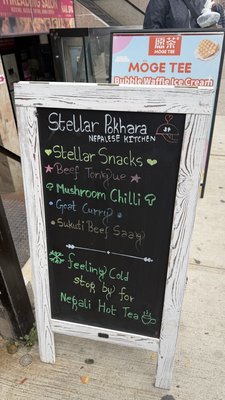 THREADING SALON
MOGE TEE
MOGE TEE
Bubble Waffle Ice Cream
Stellar Pokhara
NEPALESE KITCHEN
Stellar Snacks
Beef Tongue
Mushroom Chilli
Goat Curry
Sukuti Beef Saag
feeling Cold
stop by for
Nepali Hot Tea